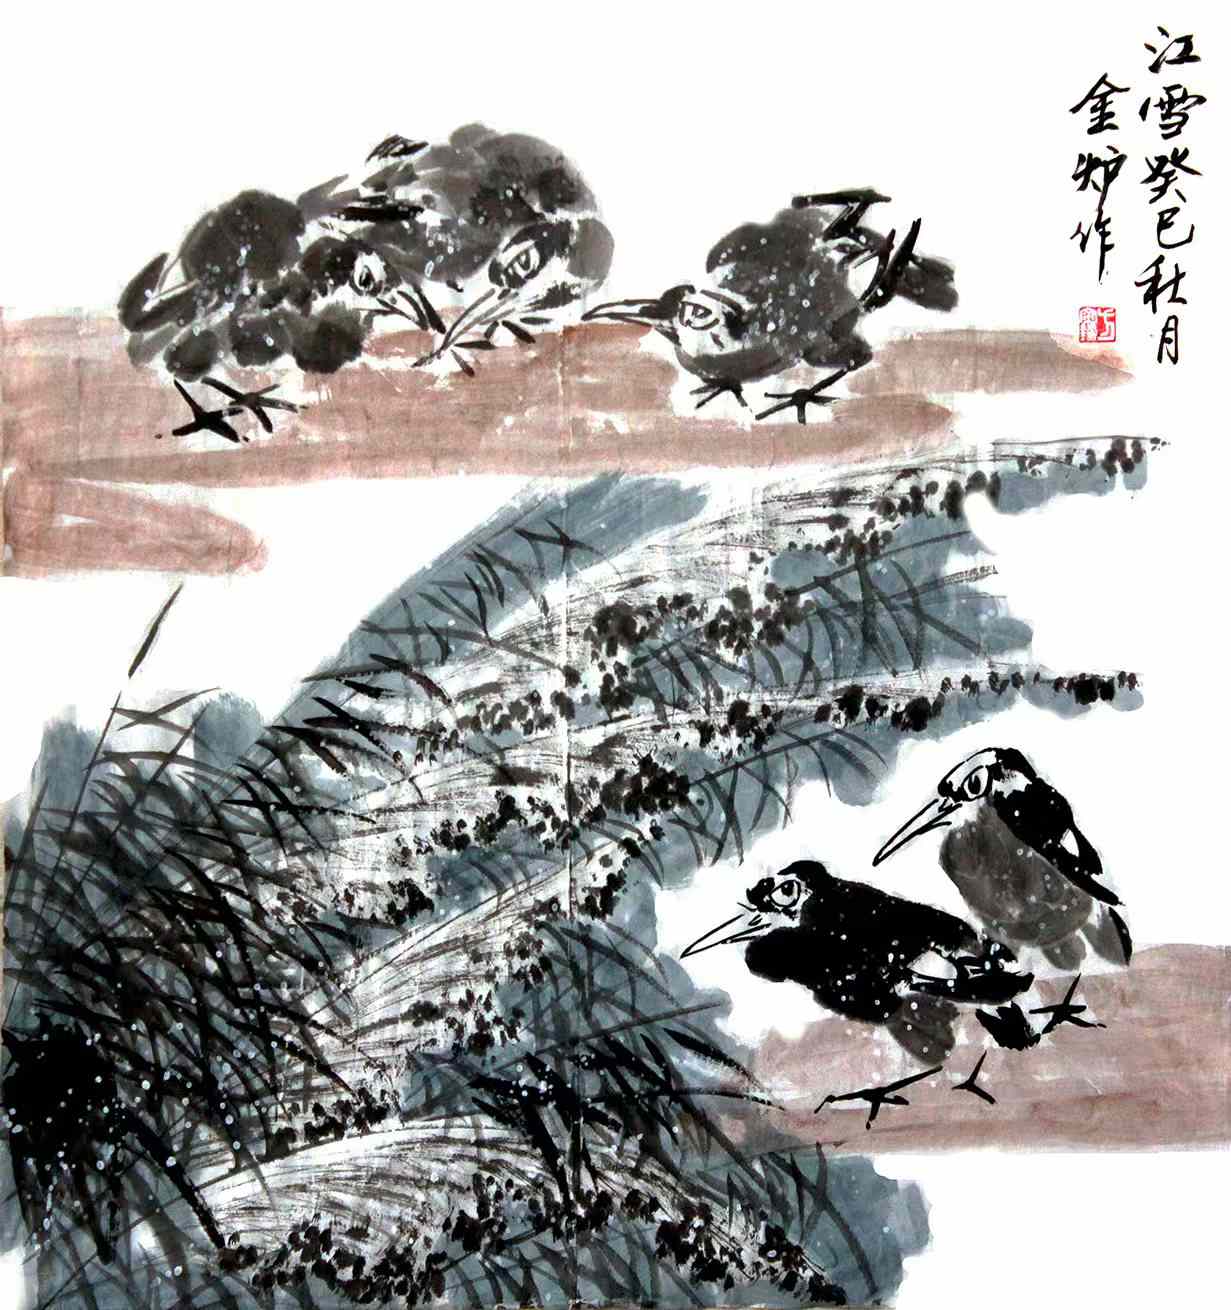 江雪癸巳秋月
金炉作